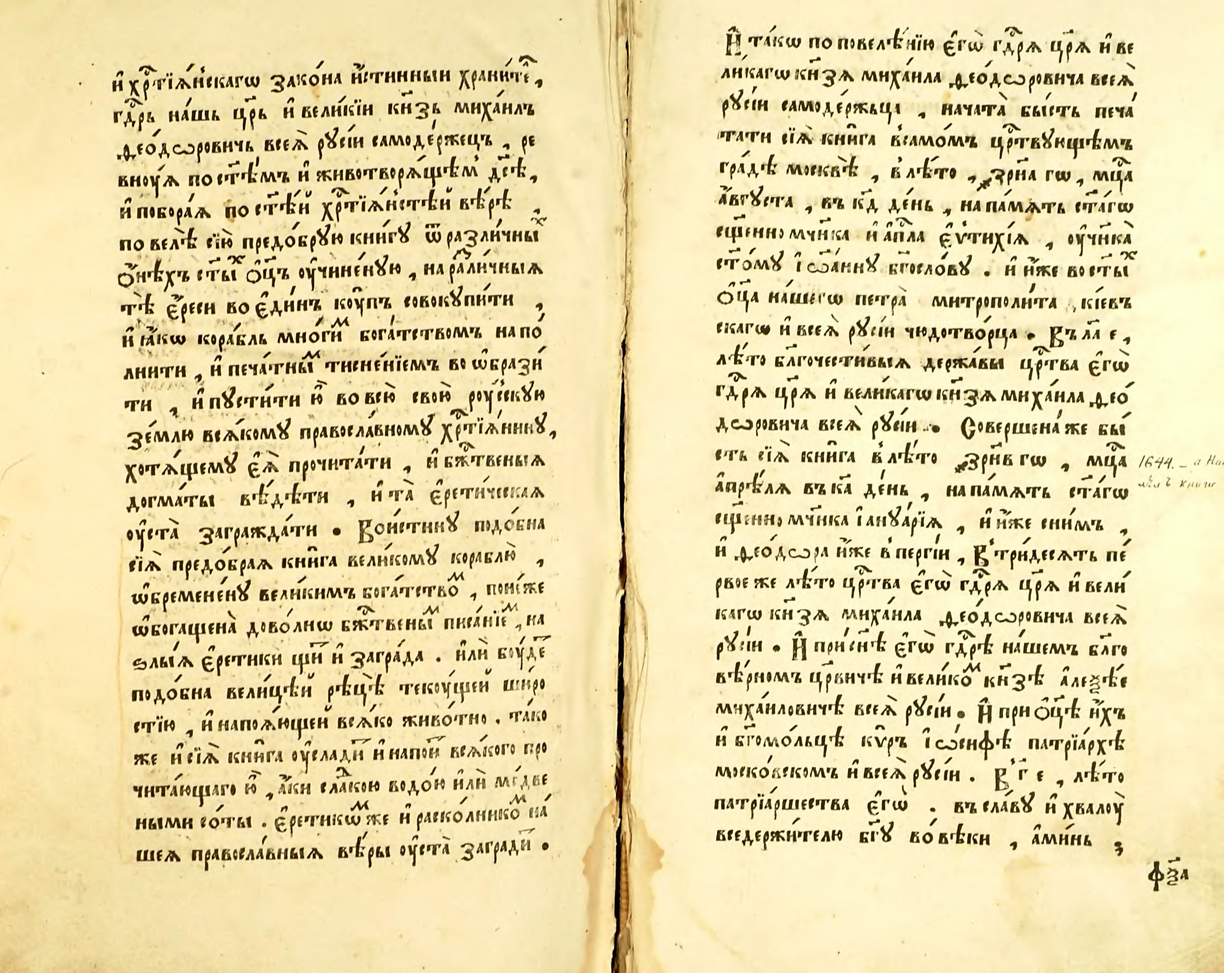 и҆ хрⷭ҇тїѧ́нскагѡ зако́на и҆́стинныи храни́теⷧ҇,
гдⷭ҇рь на́шь цр҃ь и҆ вели́кїи кнѧ҃зь миха́илъ
ѳео́дѡровичь всеѧ̀ рꙋсі́и самоде́ржецъ, ре
внꙋѧ по ст҃ѣ́мъ и҆ животворѧ́щемъ дс҃ѣ,
и҆ побора́ѧ по ст҃ѣ́й хрⷭ҇тїѧ́нстѣй вѣ́рѣ,
по велѣ̀ сїю̀ предо́брꙋю кни́гꙋ ѿ разли́чныⷯ
ѻ҆́нѣхъ ст҃ы́ⷯ ѻ҆ц҃ъ оу҆чине́нꙋю, на разли́чныѧ
тѣ̀ є҆́реси во є҆ди́нъ коу́пъ совокꙋпи́ти,
и҆ ꙗ҆́кѡ кора́бль мно́гиⷨ бога́тствомъ напо́
лнити, и҆ печа́тныⷨ тисне́нїемъ во ѡ҆брази́
ти, и҆ пꙋсти́ти ю҆̀ во всю̀ свою̀ роу́сскꙋю
зе́млю всѧ́комꙋ правосла́вномꙋ хрⷭ҇тїѧ́нинꙋ,
хотѧ́щемꙋ є҆ѧ̀ прочита́ти, и҆ бж҃твеныѧ
догма́ты вѣ́дѣти, и҆ та̀ є҆рети́ческаѧ
оу҆ста̀ загражда́ти. Вои́стинꙋ подо́бна
сїѧ̀ предо́браѧ кни́га вели́комꙋ кораблю̀,
ѡ҆бремене́нꙋ вели́кимъ бога́тствоⷨ, поне́же
ѡ҆богащена̀ дово́лнѡ бж҃твеныⷨ писа́нїеⷨ, на
ѕлы́ѧ є҆ретики щи҃ и҆ загра́да. и҆лѝ боу́де
подо́бна вели́цѣй рѣ́цѣ текоу́щей широ
стїю, и҆ напоѧ́ющей всѧ́ко живо́тно. та́ко
же и҆ сїѧ̀ кни́га оу҆слади́ и҆ напои́ всѧ́кого про
чита́ющаго ю҆̀, а҆́ки сла́кою водо́ю и҆лѝ ме́две
ными со́ты. є҆ретикѡⷨ же и҆ раско́лникоⷨ на́
шеѧ правосла́вныѧ вѣ́ры оу҆ста̀ загради́.
И҆ та́кѡ по повелѣ́нїю є҆гѡ̀ гдⷭ҇рѧ цр҃ѧ и҆ ве
ликагѡ кнѧ҃зѧ миха́ила ѳео́дѡровича всеѧ̀
рꙋсі́и самоде́ржьца, нача́та бы́сть печа́
тати сїѧ̀ кни́га в само́мъ црⷭ҇твꙋющемъ
гра́дѣ москвѣ̀, в лѣ́то ҂зр҃на гѡ, мцⷭ҇а
а҆́вгꙋста, въ кд҃ де́нь, на па́мѧть ст҃а́гѡ
сщ҃еннᲂ мч҃ика и҆ а҆пⷭ҇ла є҆ѵти́хїѧ, оу҆чн҃ика̀
ст҃о́мꙋ і҆ѡа́ннꙋ бг҃осло́вꙋ. и҆ и҆́же во ст҃ы́ⷯ
ѻ҆ц҃а на́шегѡ петра̀ митрополи́та кі́евъ
скагѡ и҆ всеѧ̀ рꙋсі́и чюдотво́рца. Въ ла҃ е,
лѣ́то благочести́выѧ держа́вы црⷭ҇тва є҆гѡ̀
гдⷭ҇рѧ цр҃ѧ и҆ вели́кагѡ кнѧ҃зѧ миха́ила ѳео́
дѡровича всеѧ̀ рꙋсі́и. Соверше́на же бы́
сть сїѧ̀ кни́га в лѣ́то ҂зр҃нв гѡ, мцⷭ҇а
а҆прѣ́лѧ въ ка҃ де́нь, на па́мѧть ст҃а́гѡ
сщ҃еннᲂ мч҃ика і҆аннꙋа́рїѧ, и҆ и҆́же сни́мъ,
и҆ ѳео́дѡра и҆́же в пергі́и, В три́десѧть пе́
рвое же лѣ́то црⷭ҇тва є҆гѡ̀ гдⷭ҇рѧ цр҃ѧ и҆ вели́
кагѡ кнѧ҃зѧ миха́ила ѳео́дѡровича всеѧ̀
рꙋсі́и. И҆ при сн҃ѣ є҆гѡ̀ гдⷭ҇рѣ на́шемъ бл҃го
вѣ́рномъ цр҃вичѣ и҆ вели́коⷨ кнѧ҃зѣ а҆леѯѣ́е
миха́иловичѣ всеѧ̀ рꙋсі́и. И҆ при ѻ҆ц҃ѣ и҆́хъ
и҆ бг҃омо́льцѣ кѵ́ръ і҆ѡ́сифѣ патрїа́рхѣ
моско́вскомъ и҆ всеѧ̀ рꙋсі́и. В г҃ е, лѣ́то
патрїа́ршества є҆гѡ̀. въ сла́вꙋ и҆ хвалоу̀
вседержи́телю бг҃ꙋ во вѣ́ки, а҆ми́нь
1644.
фѯ҃а